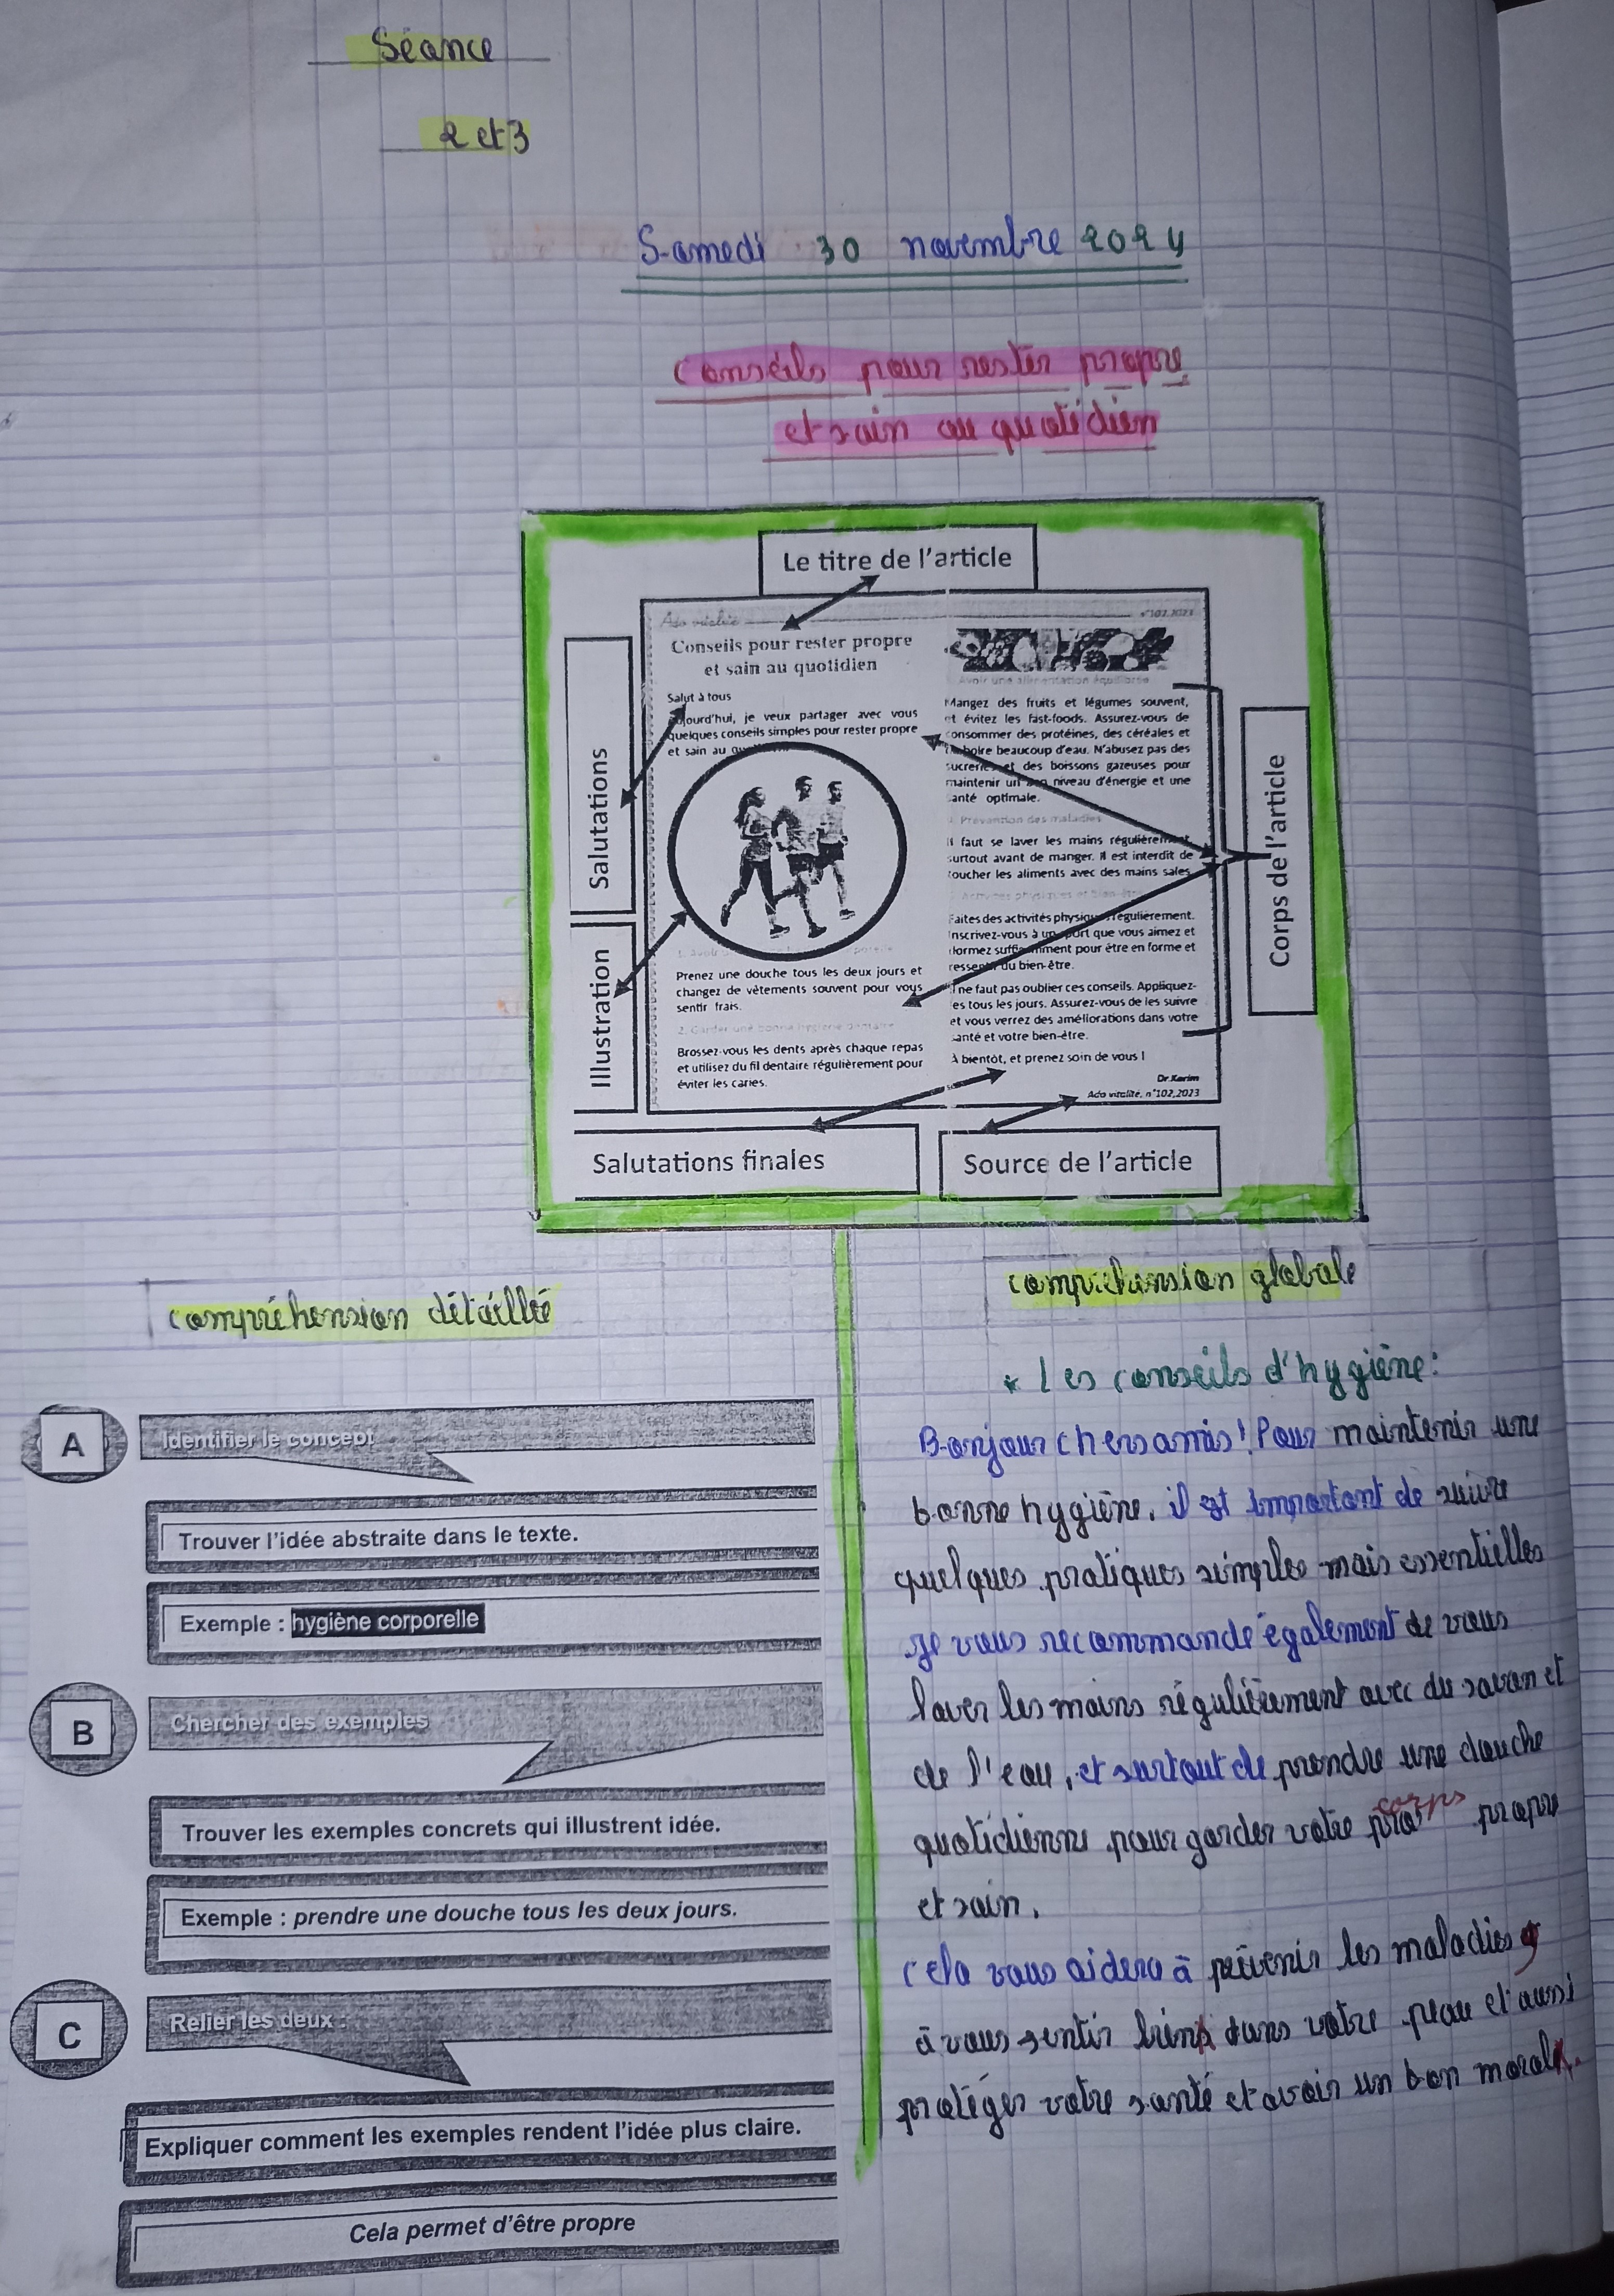 Séance
2 et 3
Samedi 30 novembre 2024
Conseils pour rester propre
et sain au quotidien
Le titre de l'article
Salutations
Illustration
Corps de l'article
Ado vitalité
n°102,2023
Conseils pour rester propre
et sain au quotidien
Salut à tous
Aujourd'hui, je veux partager avec vous
quelques conseils simples pour rester propre
et sain au
Prenez une douche tous les deux jours et
changez de vêtements souvent pour vous
sentir frais.
2. Garder une bonne hygiène dentaire
Brossez-vous les dents après chaque repas
et utilisez du fil dentaire régulièrement pour
éviter les caries.
Avoir une alimentation équilibrée
Mangez des fruits et légumes souvent,
et évitez les fast-foods. Assurez-vous de
consommer des protéines, des céréales et
boire beaucoup d'eau. N'abusez pas des
sucreries et des boissons gazeuses pour
maintenir un bon niveau d'énergie et une
santé optimale.
Prévention des maladies
Il faut se laver les mains régulièrement
surtout avant de manger. Il est interdit de
toucher les aliments avec des mains sales
Activités physiques et bien-être
Faites des activités physiques régulièrement.
Inscrivez-vous à un sport que vous aimez et
dormez suffisamment pour être en forme et
ressentir du bien-être.
Il ne faut pas oublier ces conseils. Appliquez-
les tous les jours. Assurez-vous de les suivre
et vous verrez des améliorations dans votre
santé et votre bien-être.
À bientôt, et prenez soin de vous !
Dr.Karim
Ado vitalité, n°102,2023
Salutations finales
Source de l'article
compréhension détaillé
A
Identifier le concept
Trouver l'idée abstraite dans le texte.
Exemple : hygiène corporelle
B
Chercher des exemples
Trouver les exemples concrets qui illustrent idée.
Exemple : prendre une douche tous les deux jours.
C
Relier les deux :
Expliquer comment les exemples rendent l'idée plus claire.
Cela permet d'être propre
compréhension globale
* Les conseils d'hygiène:
Bonjour chers amis! Pour maintenir une
bonne hygiène, il est important de suivre
quelques pratiques simples mais essentielles
je vous recommande également de vous
laver les mains régulièrement avec du savon et
de l'eau, et surtout de prendre une douche
quotidienne pour garder votre corps propre
et sain.
Cela vous aidera à prévenir les maladies
à vous sentir bien dans votre peau et aussi
protéger votre santé et avoir un bon moral.